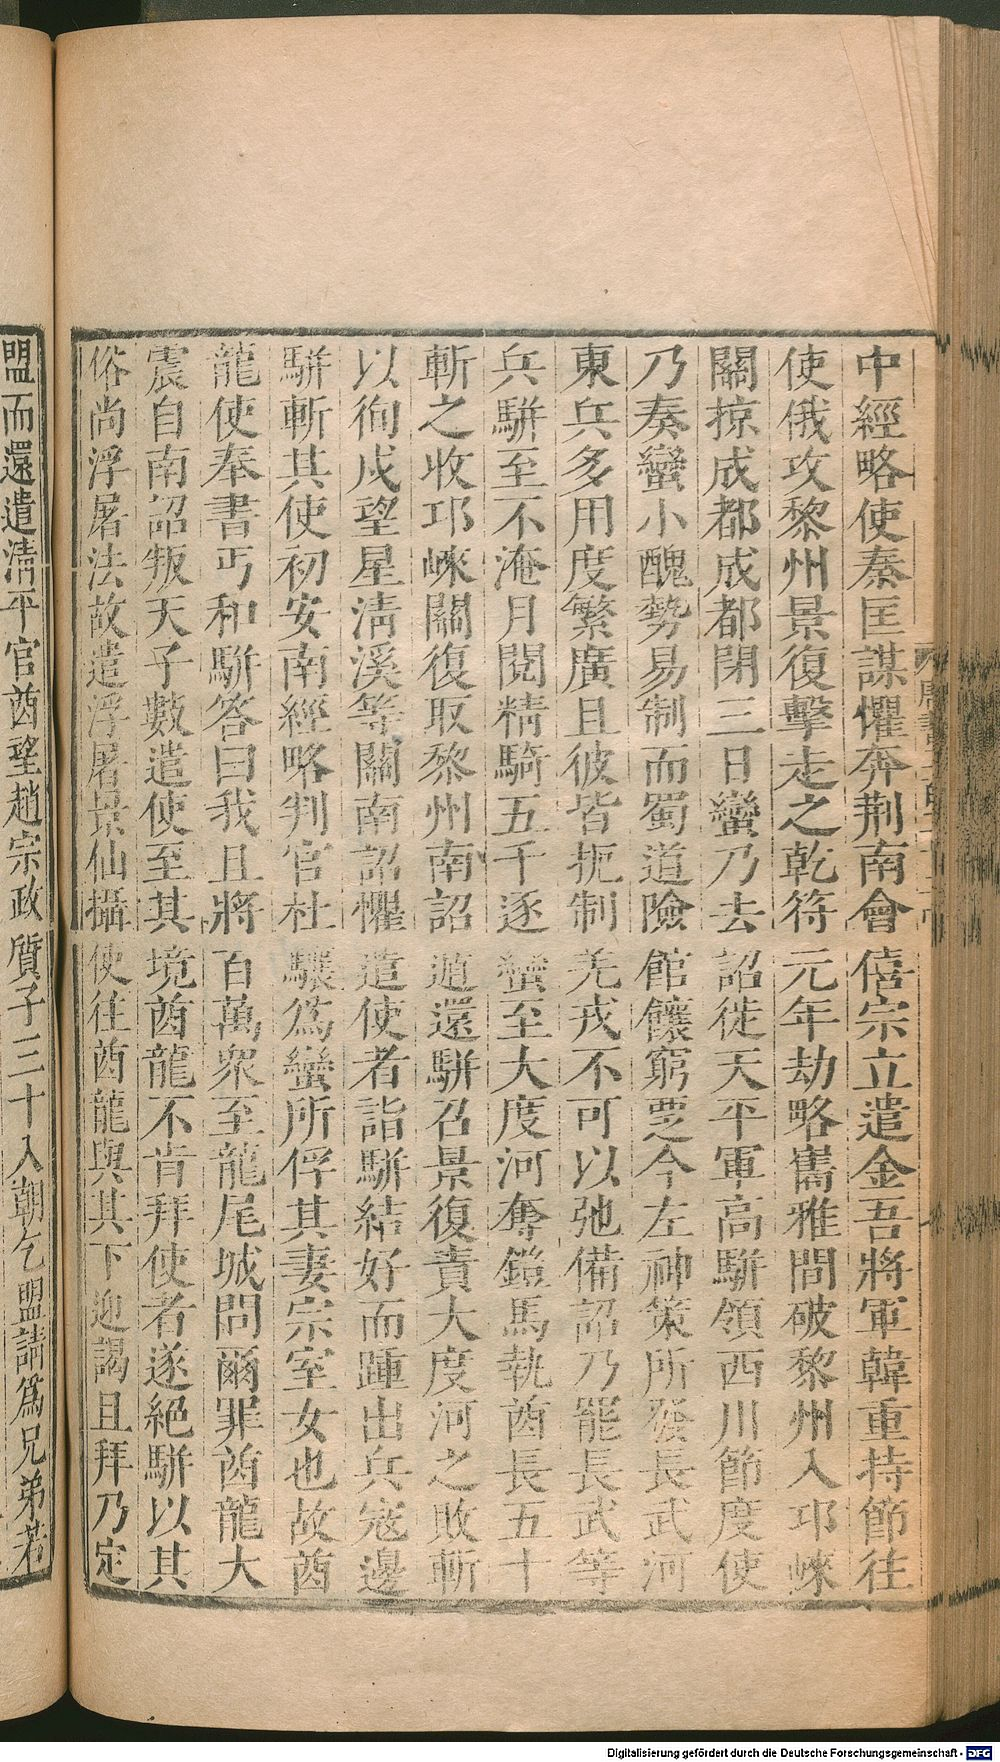 中經略使秦匡謀懼奔荆南會僖宗立遣金吾將軍韓重持節往
使俄攻黎州景復擊走之乾符元年劫略巂雅間破黎州入邛崍
關掠成都成都閉三日蠻乃去詔徙天平軍高駢領西川節度使
乃奏蠻小醜勢易制而蜀道險館饟窮乏今左神策所發長武河
東兵多用度繁廣且彼皆扼制羌戎不可以弛備詔乃罷長武等
兵駢至不淹月閱精騎五千逐蠻至大度河奪鎧馬執酋長五十
斬之收邛崍關復取黎州南詔遁還駢召景復責大度河之敗斬
以徇戍望星淸溪等關南詔懼遣使者詣駢結好而踵出兵寇邊
駢斬其使初安南經略判官杜驤爲蠻所俘其妻宗室女也故酋
龍使奉書丐和駢答曰我且將百萬衆至龍尾城問爾罪酋龍大
震自南詔叛天子數遣使至其境酋龍不肯拜使者遂絕駢以其
俗尚浮屠法故遣浮屠景仙攝使往酋龍與其下迎謁且拜乃定
盟而還遣淸平官酋望趙宗政質子三十入朝乞盟請爲兄弟若
Digitalisierung gefördert durch die Deutsche Forschungsgemeinschaft - DFG